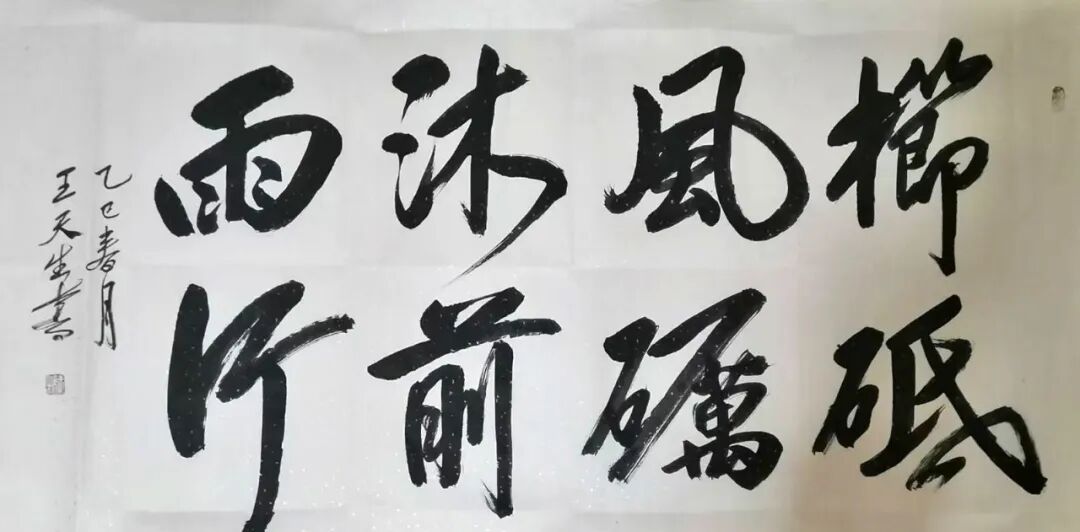 櫛風沐雨
砥礪前行
乙巳春月
王天生書